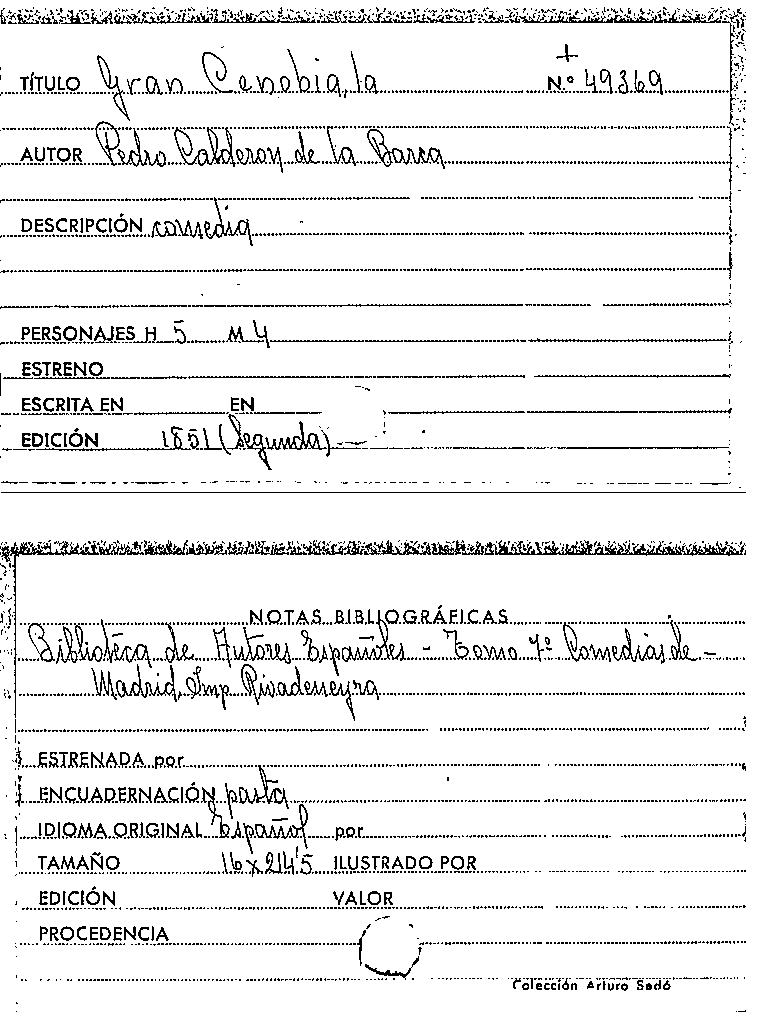 +
TÍTULO Gran Cenobia, la N.º 49369
AUTOR Pedro Calderon de la Barca
DESCRIPCIÓN comedia
PERSONAJES H 5 M 4
ESTRENO
ESCRITA EN EN
EDICIÓN 1851 (Segunda)
NOTAS BIBLIOGRÁFICAS
Biblioteca de Autores Españoles - Tomo 7º Comedias de -
Madrid, Imp Rivadeneyra
ESTRENADA por
ENCUADERNACIÓN pasta
IDIOMA ORIGINAL Español por
TAMAÑO 16 x 24'5 ILUSTRADO POR
EDICIÓN VALOR
PROCEDENCIA
Colección Arturo Sedó